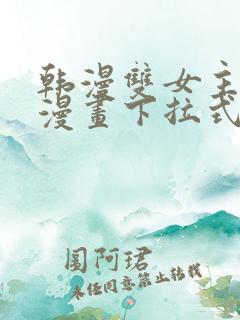 韩漫雙女主
漫畫下拉式
圖阿珺
未经同意禁止转载